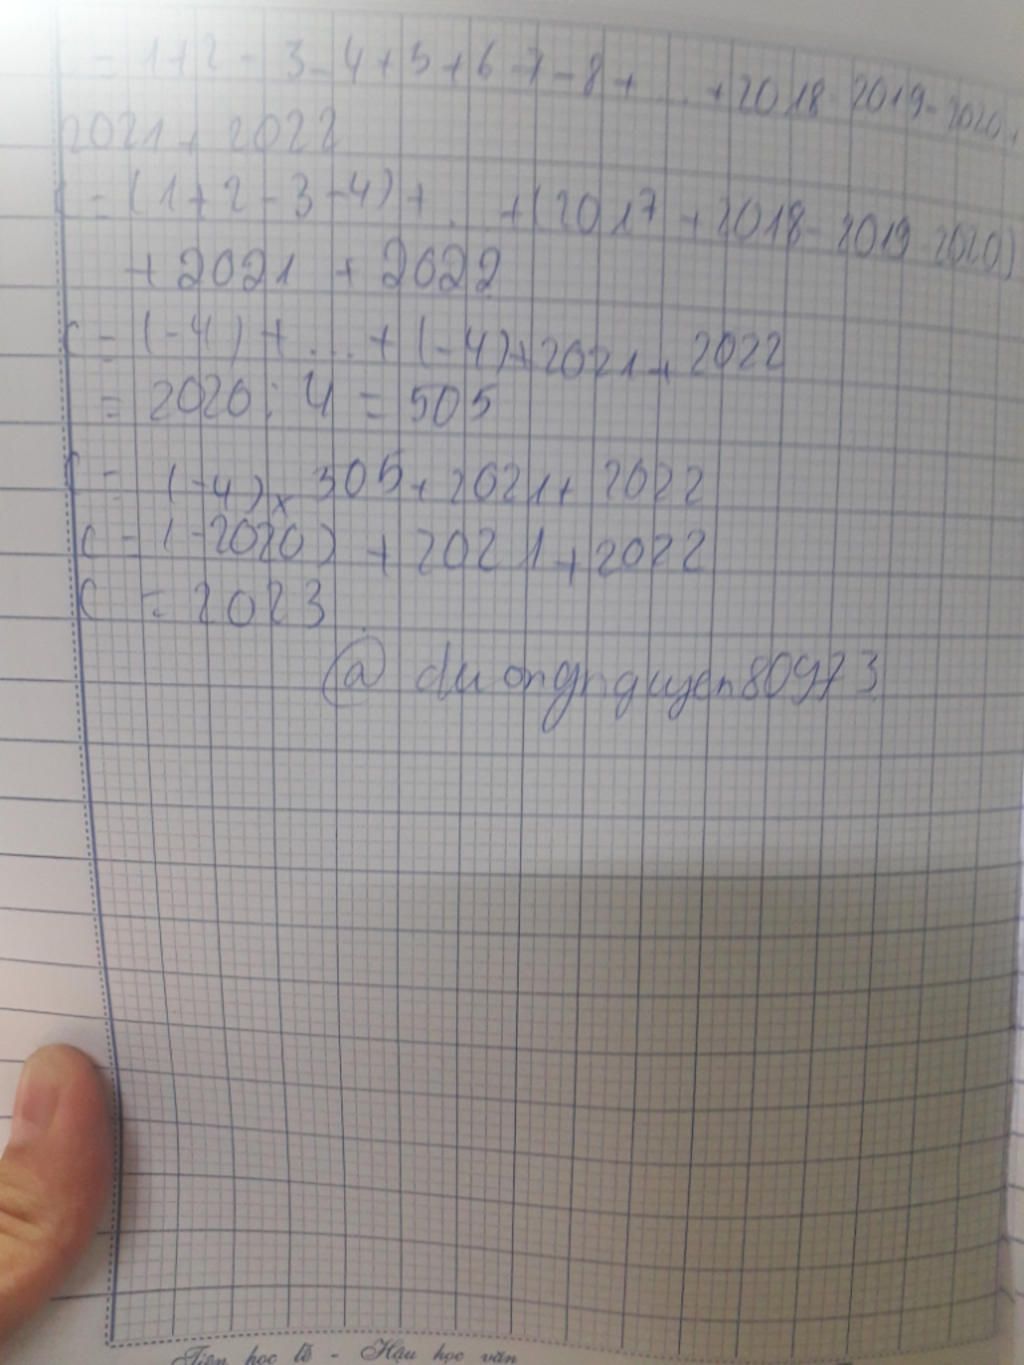 = 1+2-3-4+5+6-7-8+...+2018-2019-2020+
2021+2022
C=(1+2-3-4)+...+(2017+2018-2019-2020)
+2021+2022
C=(-4)+...+(-4)+2021+2022
= 2020:4=505
C= (-4)x505+2021+2022
C=(-2020)+2021+2022
C=2023
@duongnguyen80973
Tiên học lễ - Hậu học văn